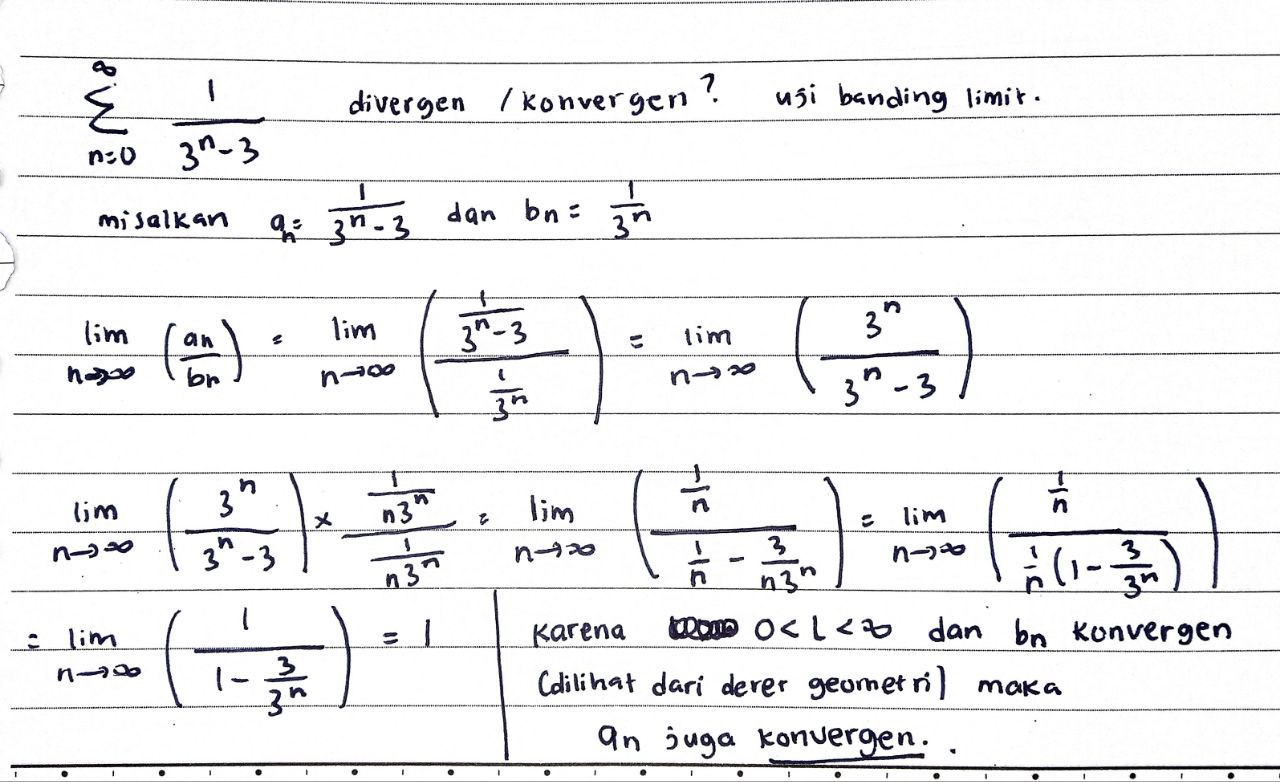 ∞
Σ 1/(3ⁿ-3) divergen / konvergen? uji banding limit.
n=0
misalkan aₙ = 1/(3ⁿ-3) dan bn = 1/3ⁿ
lim n→∞ (an/bn) = lim n→∞ ((1/(3ⁿ-3))/(1/3ⁿ)) = lim n→∞ (3ⁿ/(3ⁿ-3))
lim n→∞ (3ⁿ/(3ⁿ-3)) × (1/n3ⁿ)/(1/n3ⁿ) = lim n→∞ ((1/n)/(1/n - 3/n3ⁿ)) = lim n→∞ ((1/n)/(1/n(1 - 3/3ⁿ)))
= lim n→∞ (1/(1 - 3/3ⁿ)) = 1
karena 0<L<∞ dan bn konvergen
(dilihat dari deret geometri) maka
an juga konvergen.